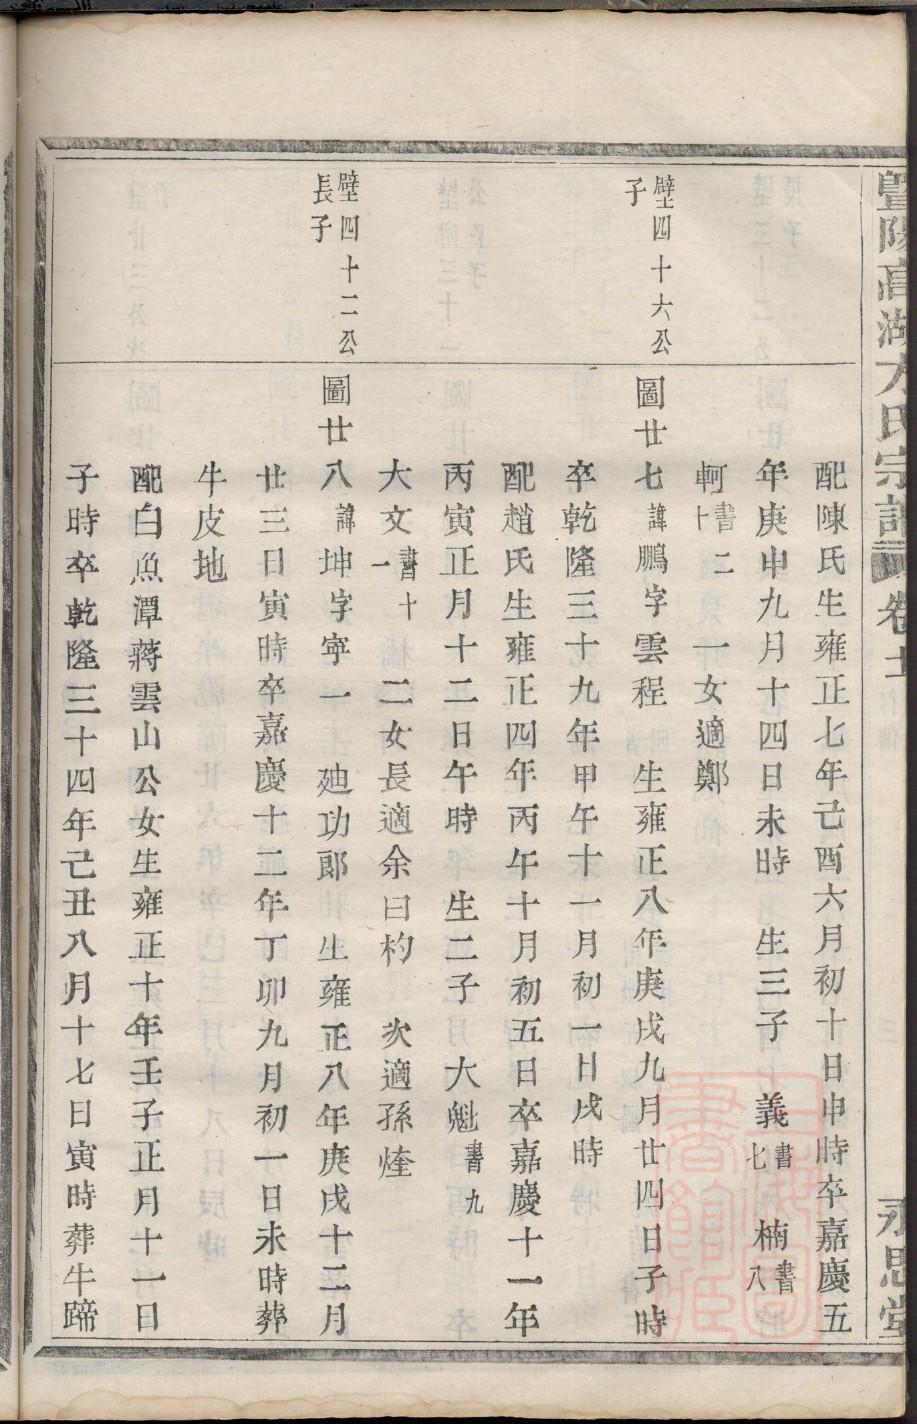 暨陽高湖方氏宗譜 卷十 永思堂
配陳氏生雍正七年己酉六月初十日申時卒嘉慶五
年庚申九月十四日未時 生三子 義書七 楠書八
軻書二十 一女適鄭
壁四十六公子
圖廿七諱鵬字雲程 生雍正八年庚戌九月廿四日子時
卒乾隆三十九年甲午十一月初一日戌時
配趙氏生雍正四年丙午十月初五日卒嘉慶十一年
丙寅正月十二日午時 生二子 大魁書九
大文書十一 二女長適余曰杓 次適孫烽
壁四十二公長子
圖廿八諱坤字寧一 廸功郞 生雍正八年庚戌十二月
廿三日寅時卒嘉慶十二年丁卯九月初一日未時葬
牛皮地
配白魚潭蔣雲山公女生雍正十年壬子正月十一日
子時卒乾隆三十四年己丑八月十七日寅時葬牛蹄